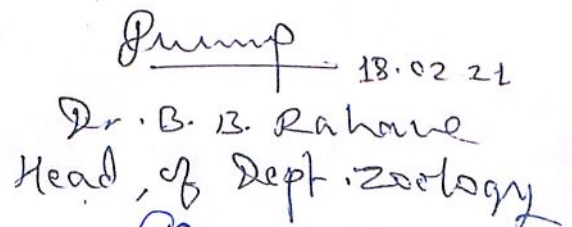 18.02 21
Dr. B. B. Rahane
Head, of Dept. Zoology